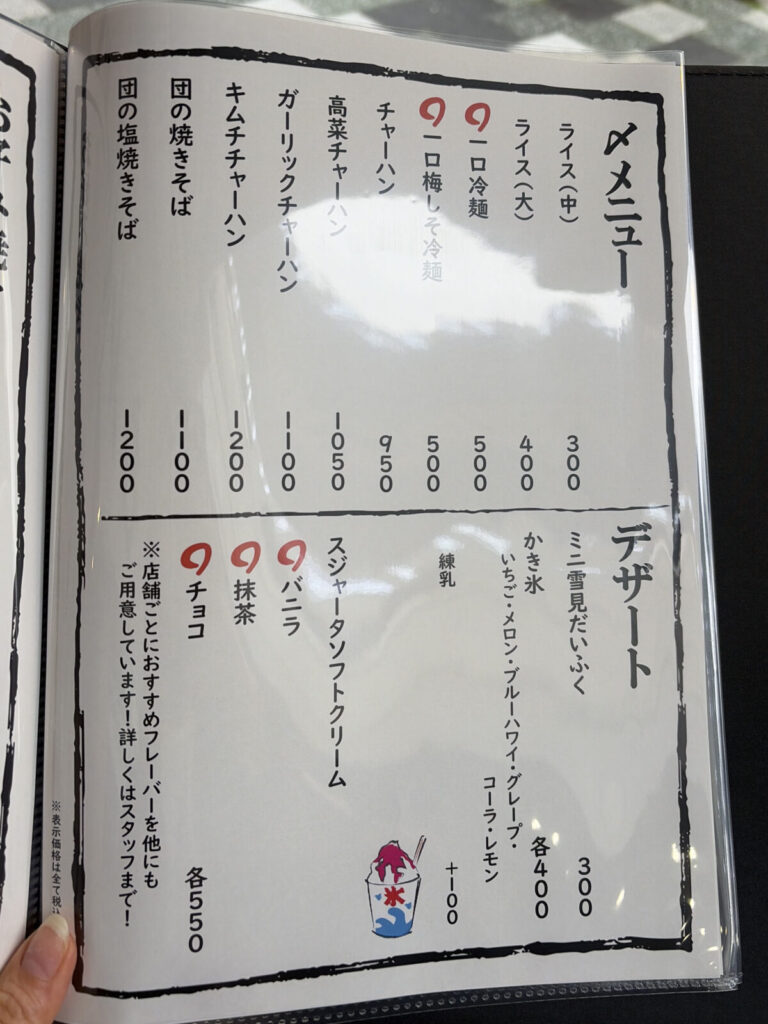 〆メニュー
ライス（中） 300
ライス（大） 400
一口冷麺 500
一口梅しそ冷麺 500
チャーハン 950
高菜チャーハン 1050
ガーリックチャーハン 1100
キムチチャーハン 1200
団の焼きそば 1100
団の塩焼きそば 1200
デザート
ミニ雪見だいふく 300
かき氷 各400
いちご・メロン・ブルーハワイ・グレープ・
コーラ・レモン
練乳 +100
氷
スジャータソフトクリーム
バニラ
抹茶
チョコ 各550
※店舗ごとにおすすめフレーバーを他にも
ご用意しています！詳しくはスタッフまで！
※表示価格は全て税込